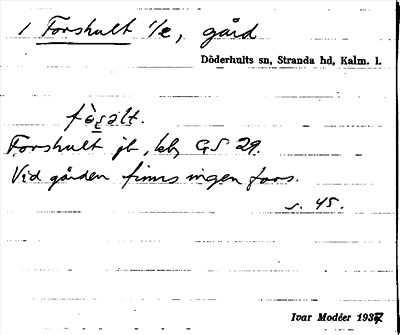 1 Forshult 1/2, gård
Döderhults sn, Stranda hd, Kalm. l.
Forshult jb, kb, GS 29.
Vid gården finns ingen fors.
s. 45.
Ivar Modéer 1937